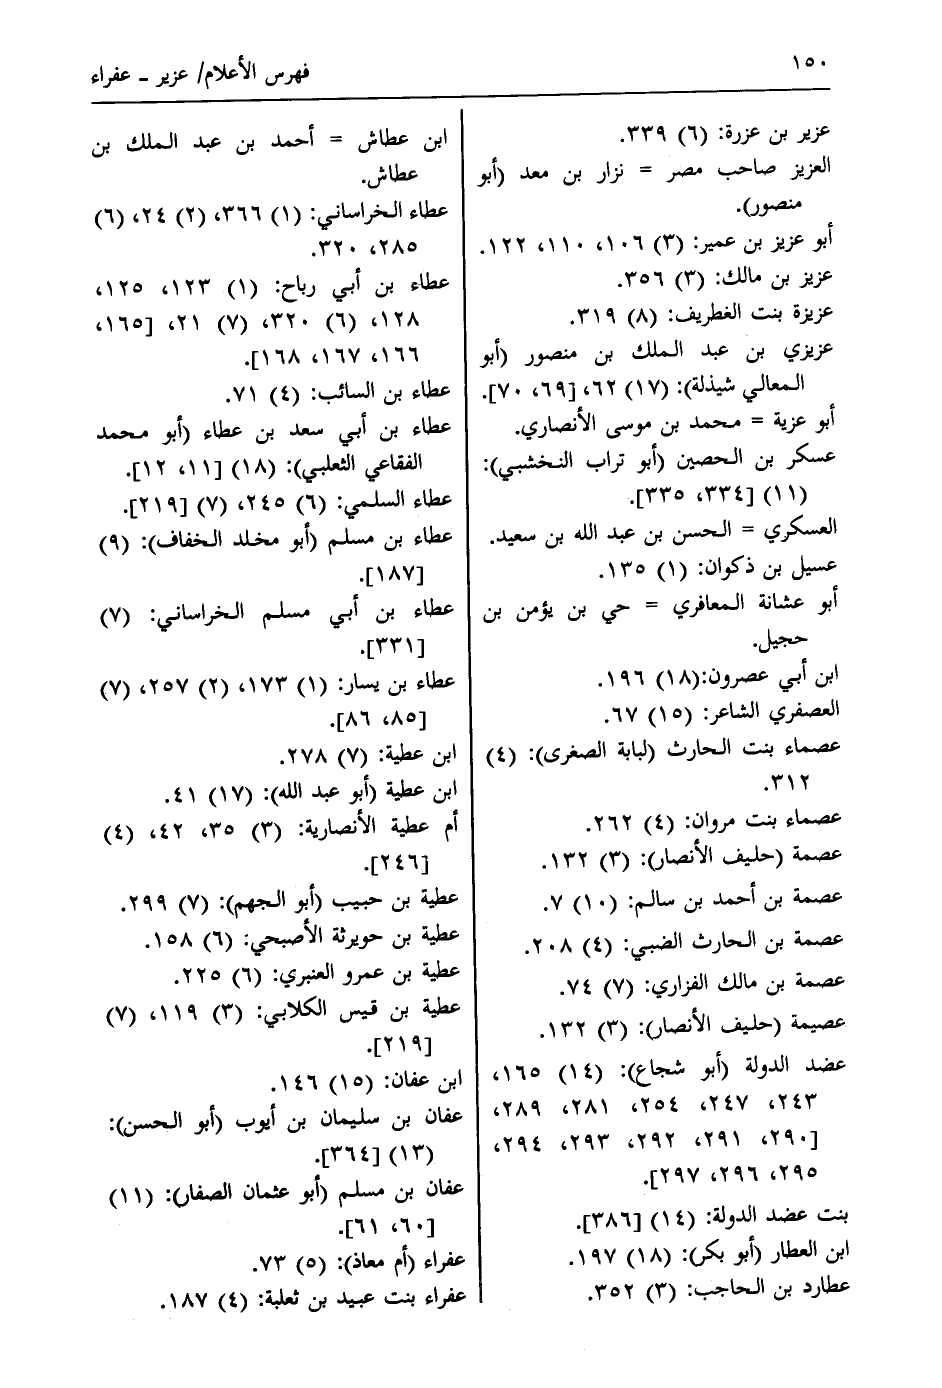 ١٥٠
فهرس الأعلام/ عزير ـ عفراء
عزير بن عزرة: (٦) ٣٣٩.
العزيز صاحب مصر = نزار بن معد (أبو
منصور).
أبو عزيز بن عمير: (٣) ١٠٦، ١١٠، ١٢٢.
عزيز بن مالك: (٣) ٣٥٦.
عزيزة بنت الغطريف: (٨) ٣١٩.
عزيزي بن عبد الملك بن منصور (أبو
المعالي شيذلة): (١٧) ٦٢، [٦٩، ٧٠].
أبو عزية = محمد بن موسى الأنصاري.
عسكر بن الحصين (أبو تراب النخشبي):
(١١) [٣٣٤، ٣٣٥].
العسكري = الحسن بن عبد الله بن سعيد.
عسيل بن ذكوان: (١) ١٣٥.
أبو عشانة المعافري = حي بن يؤمن بن
حجيل.
ابن أبي عصرون:(١٨) ١٩٦.
العصفري الشاعر: (١٥) ٦٧.
عصماء بنت الحارث (لبابة الصغرى): (٤)
٣١٢.
عصماء بنت مروان: (٤) ٢٦٢.
عصمة (حليف الأنصار): (٣) ١٣٢.
عصمة بن أحمد بن سالم: (١٠) ٧.
عصمة بن الحارث الضبي: (٤) ٢٠٨.
عصمة بن مالك الفزاري: (٧) ٧٤.
عصيمة (حليف الأنصار): (٣) ١٣٢.
عضد الدولة (أبو شجاع): (١٤) ١٦٥،
٢٤٣، ٢٤٧، ٢٥٤، ٢٨١، ٢٨٩،
[٢٩٠، ٢٩١، ٢٩٢، ٢٩٣، ٢٩٤،
٢٩٥، ٢٩٦، ٢٩٧].
بنت عضد الدولة: (١٤) [٣٨٦].
ابن العطار (أبو بكر): (١٨) ١٩٧.
عطارد بن الحاجب: (٣) ٣٥٢.
ابن عطاش = أحمد بن عبد الملك بن
عطاش.
عطاء الخراساني: (١) ٣٦٦، (٢) ٢٤، (٦)
٢٨٥، ٣٢٠.
عطاء بن أبي رباح: (١) ١٢٣، ١٢٥،
١٢٨، (٦) ٣٢٠، (٧) ٢١، [١٦٥،
١٦٦، ١٦٧، ١٦٨].
عطاء بن السائب: (٤) ٧١.
عطاء بن أبي سعد بن عطاء (أبو محمد
الفقاعي الثعلبي): (١٨) [١١، ١٢].
عطاء السلمي: (٦) ٢٤٥، (٧) [٢١٩].
عطاء بن مسلم (أبو مخلد الخفاف): (٩)
[١٨٧].
عطاء بن أبي مسلم الخراساني: (٧)
[٣٣١].
عطاء بن يسار: (١) ١٧٣، (٢) ٢٥٧، (٧)
[٨٥، ٨٦].
ابن عطية: (٧) ٢٧٨.
ابن عطية (أبو عبد الله): (١٧) ٤١.
أم عطية الأنصارية: (٣) ٣٥، ٤٢، (٤)
[٢٤٦].
عطية بن حبيب (أبو الجهم): (٧) ٢٩٩.
عطية بن حويرثة الأصبحي: (٦) ١٥٨.
عطية بن عمرو العنبري: (٦) ٢٢٥.
عطية بن قيس الكلابي: (٣) ١١٩، (٧)
[٢١٩].
ابن عفان: (١٥) ١٤٦.
عفان بن سليمان بن أيوب (أبو الحسن):
(١٣) [٣٦٤].
عفان بن مسلم (أبو عثمان الصفار): (١١)
[٦٠، ٦١].
عفراء (أم معاذ): (٥) ٧٣.
عفراء بنت عبيد بن ثعلبة: (٤) ١٨٧.